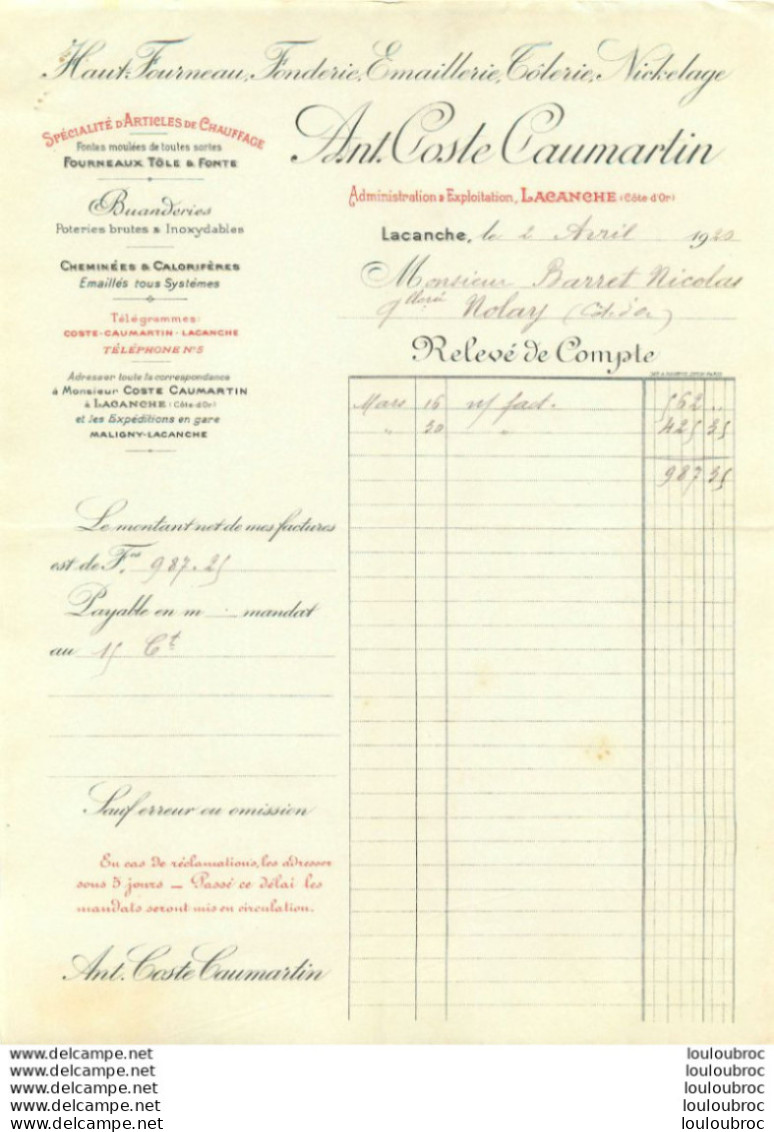 Haut-Fourneau, Fonderie, Emaillerie, Tôlerie, Nickelage
Ant. Coste Caumartin
Administration & Exploitation, LACANCHE (Côte d'Or)
SPÉCIALITÉ D'ARTICLES DE CHAUFFAGE
Fontes moulées de toutes sortes
FOURNEAUX TÔLE & FONTE
Buanderies
Poteries brutes & Inoxydables
CHEMINÉES & CALORIFÈRES
Emaillés tous Systèmes
Télégrammes:
COSTE-CAUMARTIN-LACANCHE
TÉLÉPHONE N° 5
Adresser toute la correspondance
à Monsieur COSTE CAUMARTIN
à LACANCHE (Côte-d'Or)
et les Expéditions en gare
MALIGNY-LACANCHE
Lacanche, le 2 Avril 1920
Monsieur Barret Nicolas
Nolay (Côte d'Or)
Relevé de Compte
Mars 16 n/ fact. 562 "
" 30 " 425 35
987 35
Le montant net de mes factures
est de F.cs 987.25
Payable en m mandat
au 15 Ct
Sauf erreur ou omission
En cas de réclamations, les adresser
sous 5 jours — Passé ce délai les
mandats seront mis en circulation.
Ant. Coste Caumartin
www.delcampe.net louloubroc
www.delcampe.net louloubroc
www.delcampe.net louloubroc
www.delcampe.net louloubroc
www.delcampe.net louloubroc